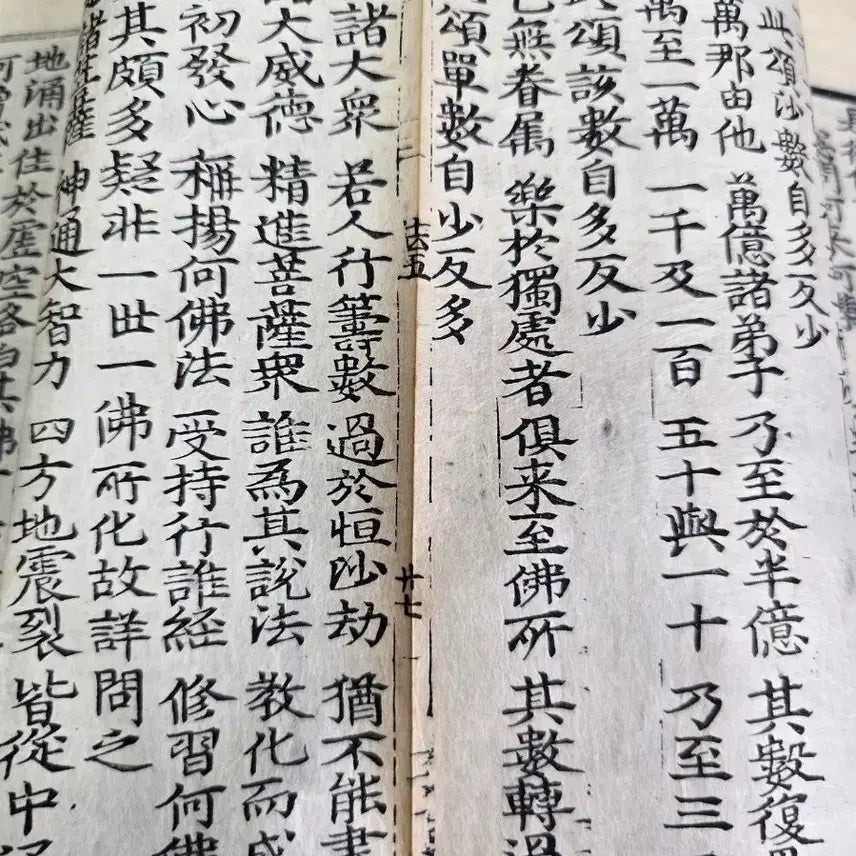 此頌沙數自多反少
萬那由他 萬億諸弟子 乃至於半億 其數復
萬至一萬 一千及一百 五十與一十 乃至三
頌該數自多反少
無眷屬 樂於獨處者 俱来至佛所 其數轉過
頌單數自少反多
法五 廿七
諸大衆 若人行籌數 過於恒沙劫 猶不能盡
大威德 精進菩薩衆 誰為其說法 教化而成
初發心 稱揚何佛法 受持行誰經 修習何佛
其頗多疑非一世一佛所化故詳問之
神通大智力 四方地震裂 皆從中
地涌出住於虛空各